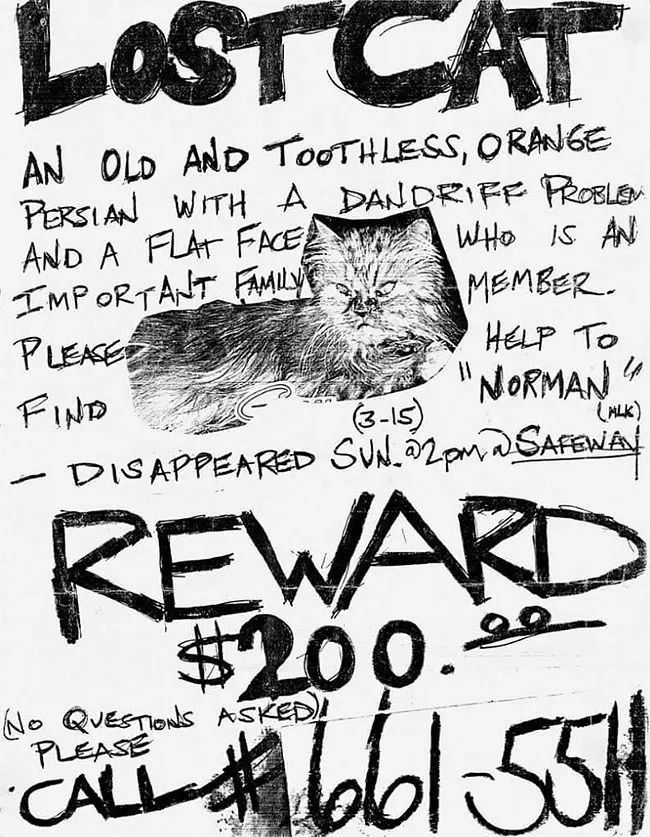 LOST CAT
AN OLD AND TOOTHLESS, ORANGE
PERSIAN WITH A DANDRIFF PROBLEM
AND A FLAT FACE WHO IS AN
IMPORTANT FAMILY MEMBER.
PLEASE HELP TO
FIND "NORMAN"
(3-15) (MLK)
— DISAPPEARED SUN. @2pm @ SAFEWAY
REWARD
$200.00
(NO QUESTIONS ASKED)
PLEASE
CALL # 661-5511